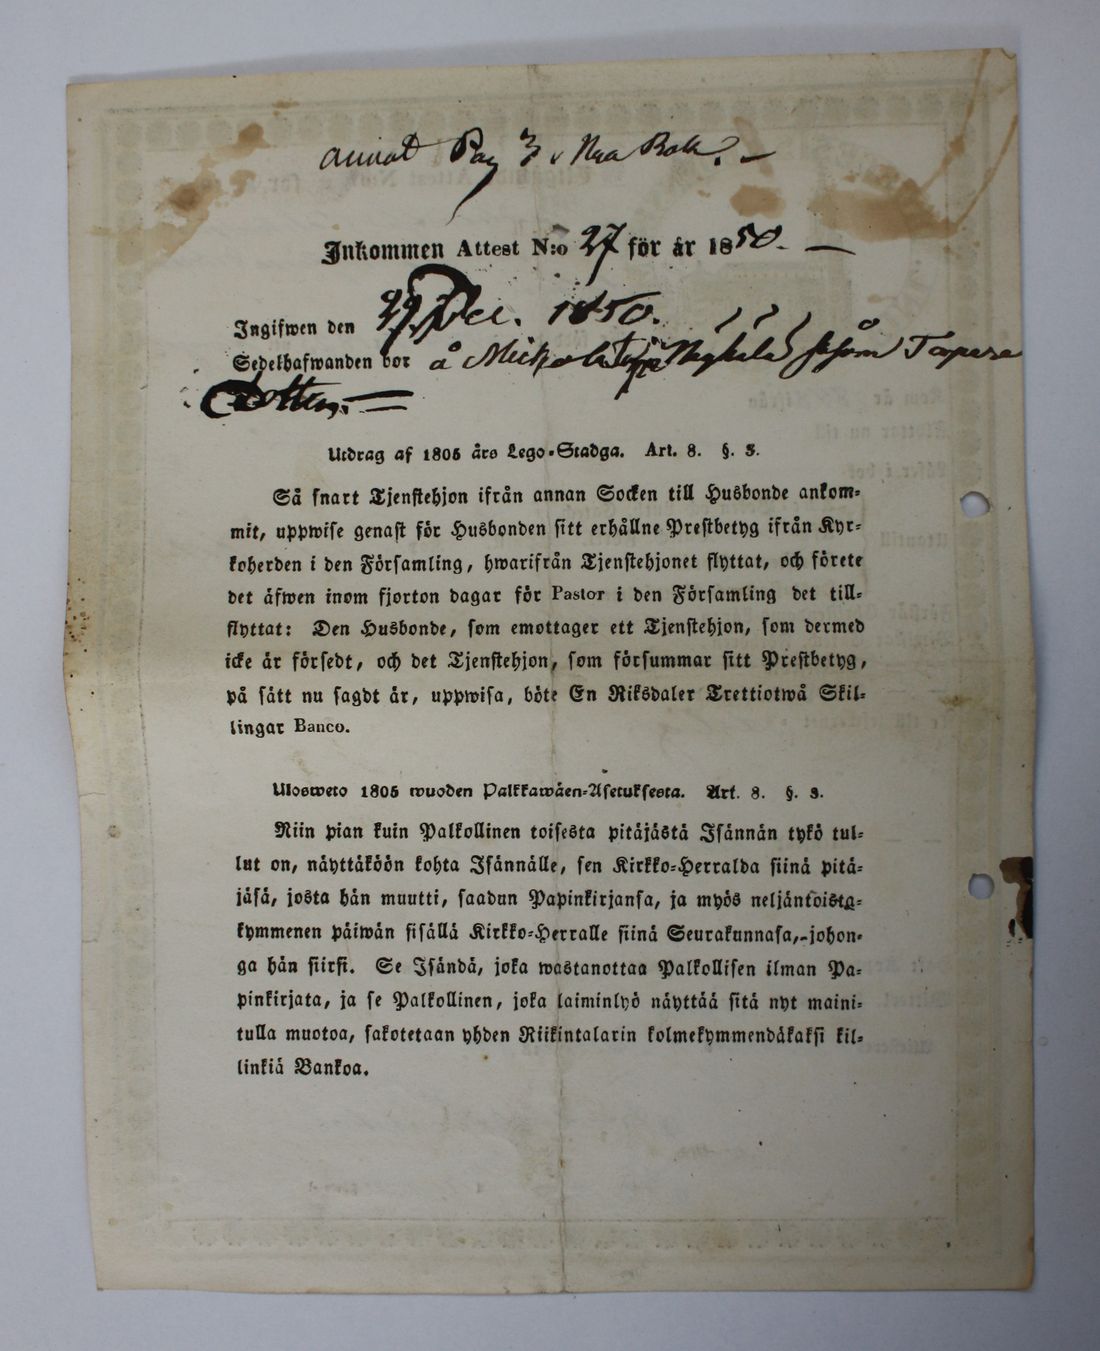 Pag 3
Inkommen Attest N:o 27 för år 1850.
Ingifwen den 29 Dec. 1850.
Sedelhafwanden bor å
Utdrag af 1805 års Lego-Stadga. Art. 8. §. 3.
Så snart Tjenstehjon ifrån annan Socken till Husbonde ankom-
mit, uppwise genast för Husbonden sitt erhållne Prestbetyg ifrån Kyr-
koherden i den Församling, hwarifrån Tjenstehjonet flyttat, och förete
det äfwen inom fjorton dagar för Pastor i den Församling det till-
flyttat: Den Husbonde, som emottager ett Tjenstehjon, som dermed
icke är försedt, och det Tjenstehjon, som försummar sitt Prestbetyg,
på sätt nu sagdt är, uppwisa, böte En Riksdaler Trettiotwå Skil-
lingar Banco.
Ulosweto 1805 wuoden Palkkawäen-Asetuksesta. Art. 8. §. 3.
Niin pian kuin Palkollinen toisesta pitäjästä Isännän tykö tul-
lut on, näyttäköön kohta Isännälle, sen Kirkko-Herralda siinä pitä-
jäsä, josta hän muutti, saadun Papinkirjansa, ja myös neljäntoista-
kymmenen päiwän sisällä Kirkko-Herralle siinä Seurakunnasa, johon-
ga hän siirsi. Se Isändä, joka wastanottaa Palkollisen ilman Pa-
pinkirjata, ja se Palkollinen, joka laiminlyö näyttää sitä nyt maini-
tulla muotoa, sakotetaan yhden Riikintalarin kolmekymmendäkaksi kil-
linkiä Bankoa.